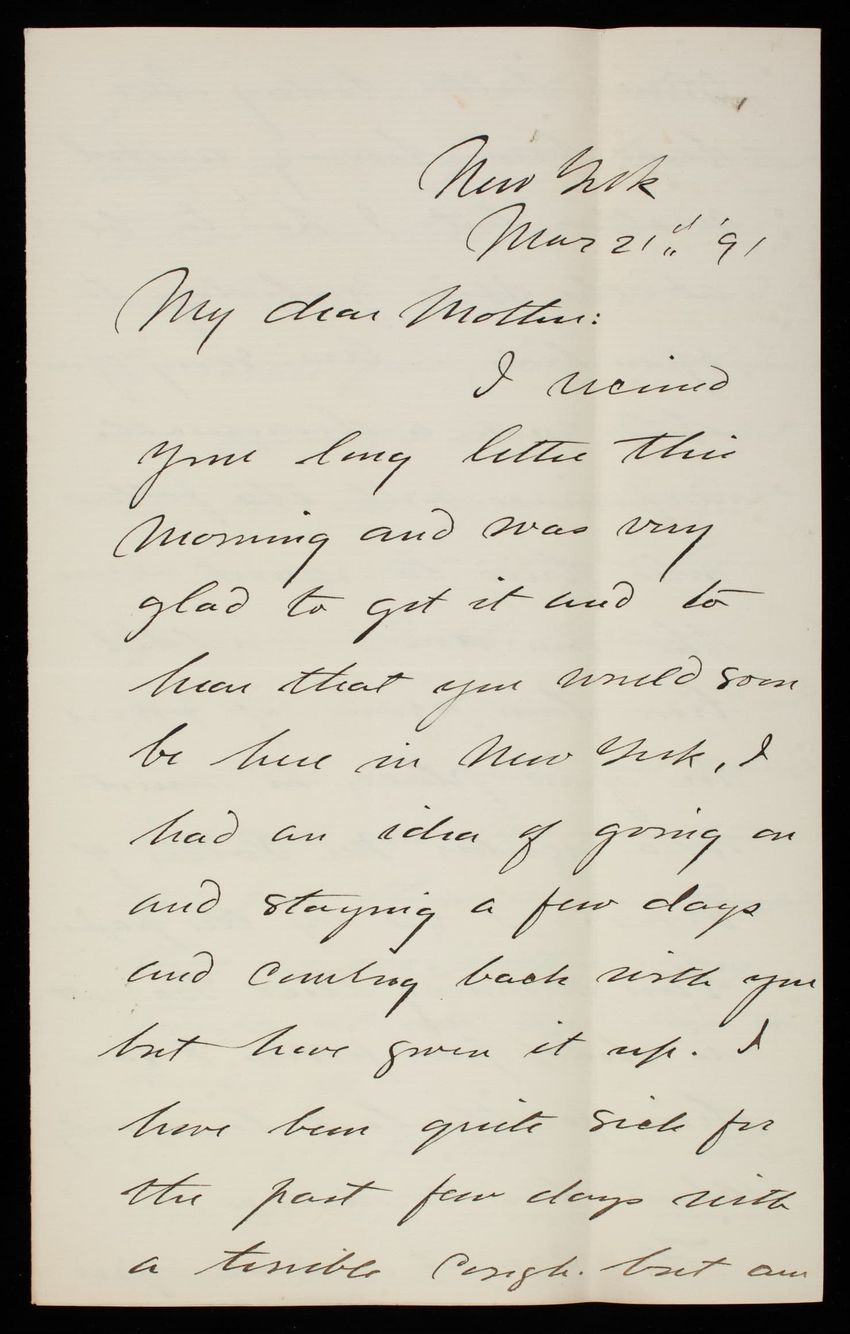 New York
Mar 21st '91
My dear Mother:
I received
your long letter this
morning and was very
glad to get it and to
hear that you would soon
be here in New York, I
had an idea of going on
and staying a few days
and coming back with you
but have given it up. I
have been quite sick for
the past few days with
a terrible cough. but am